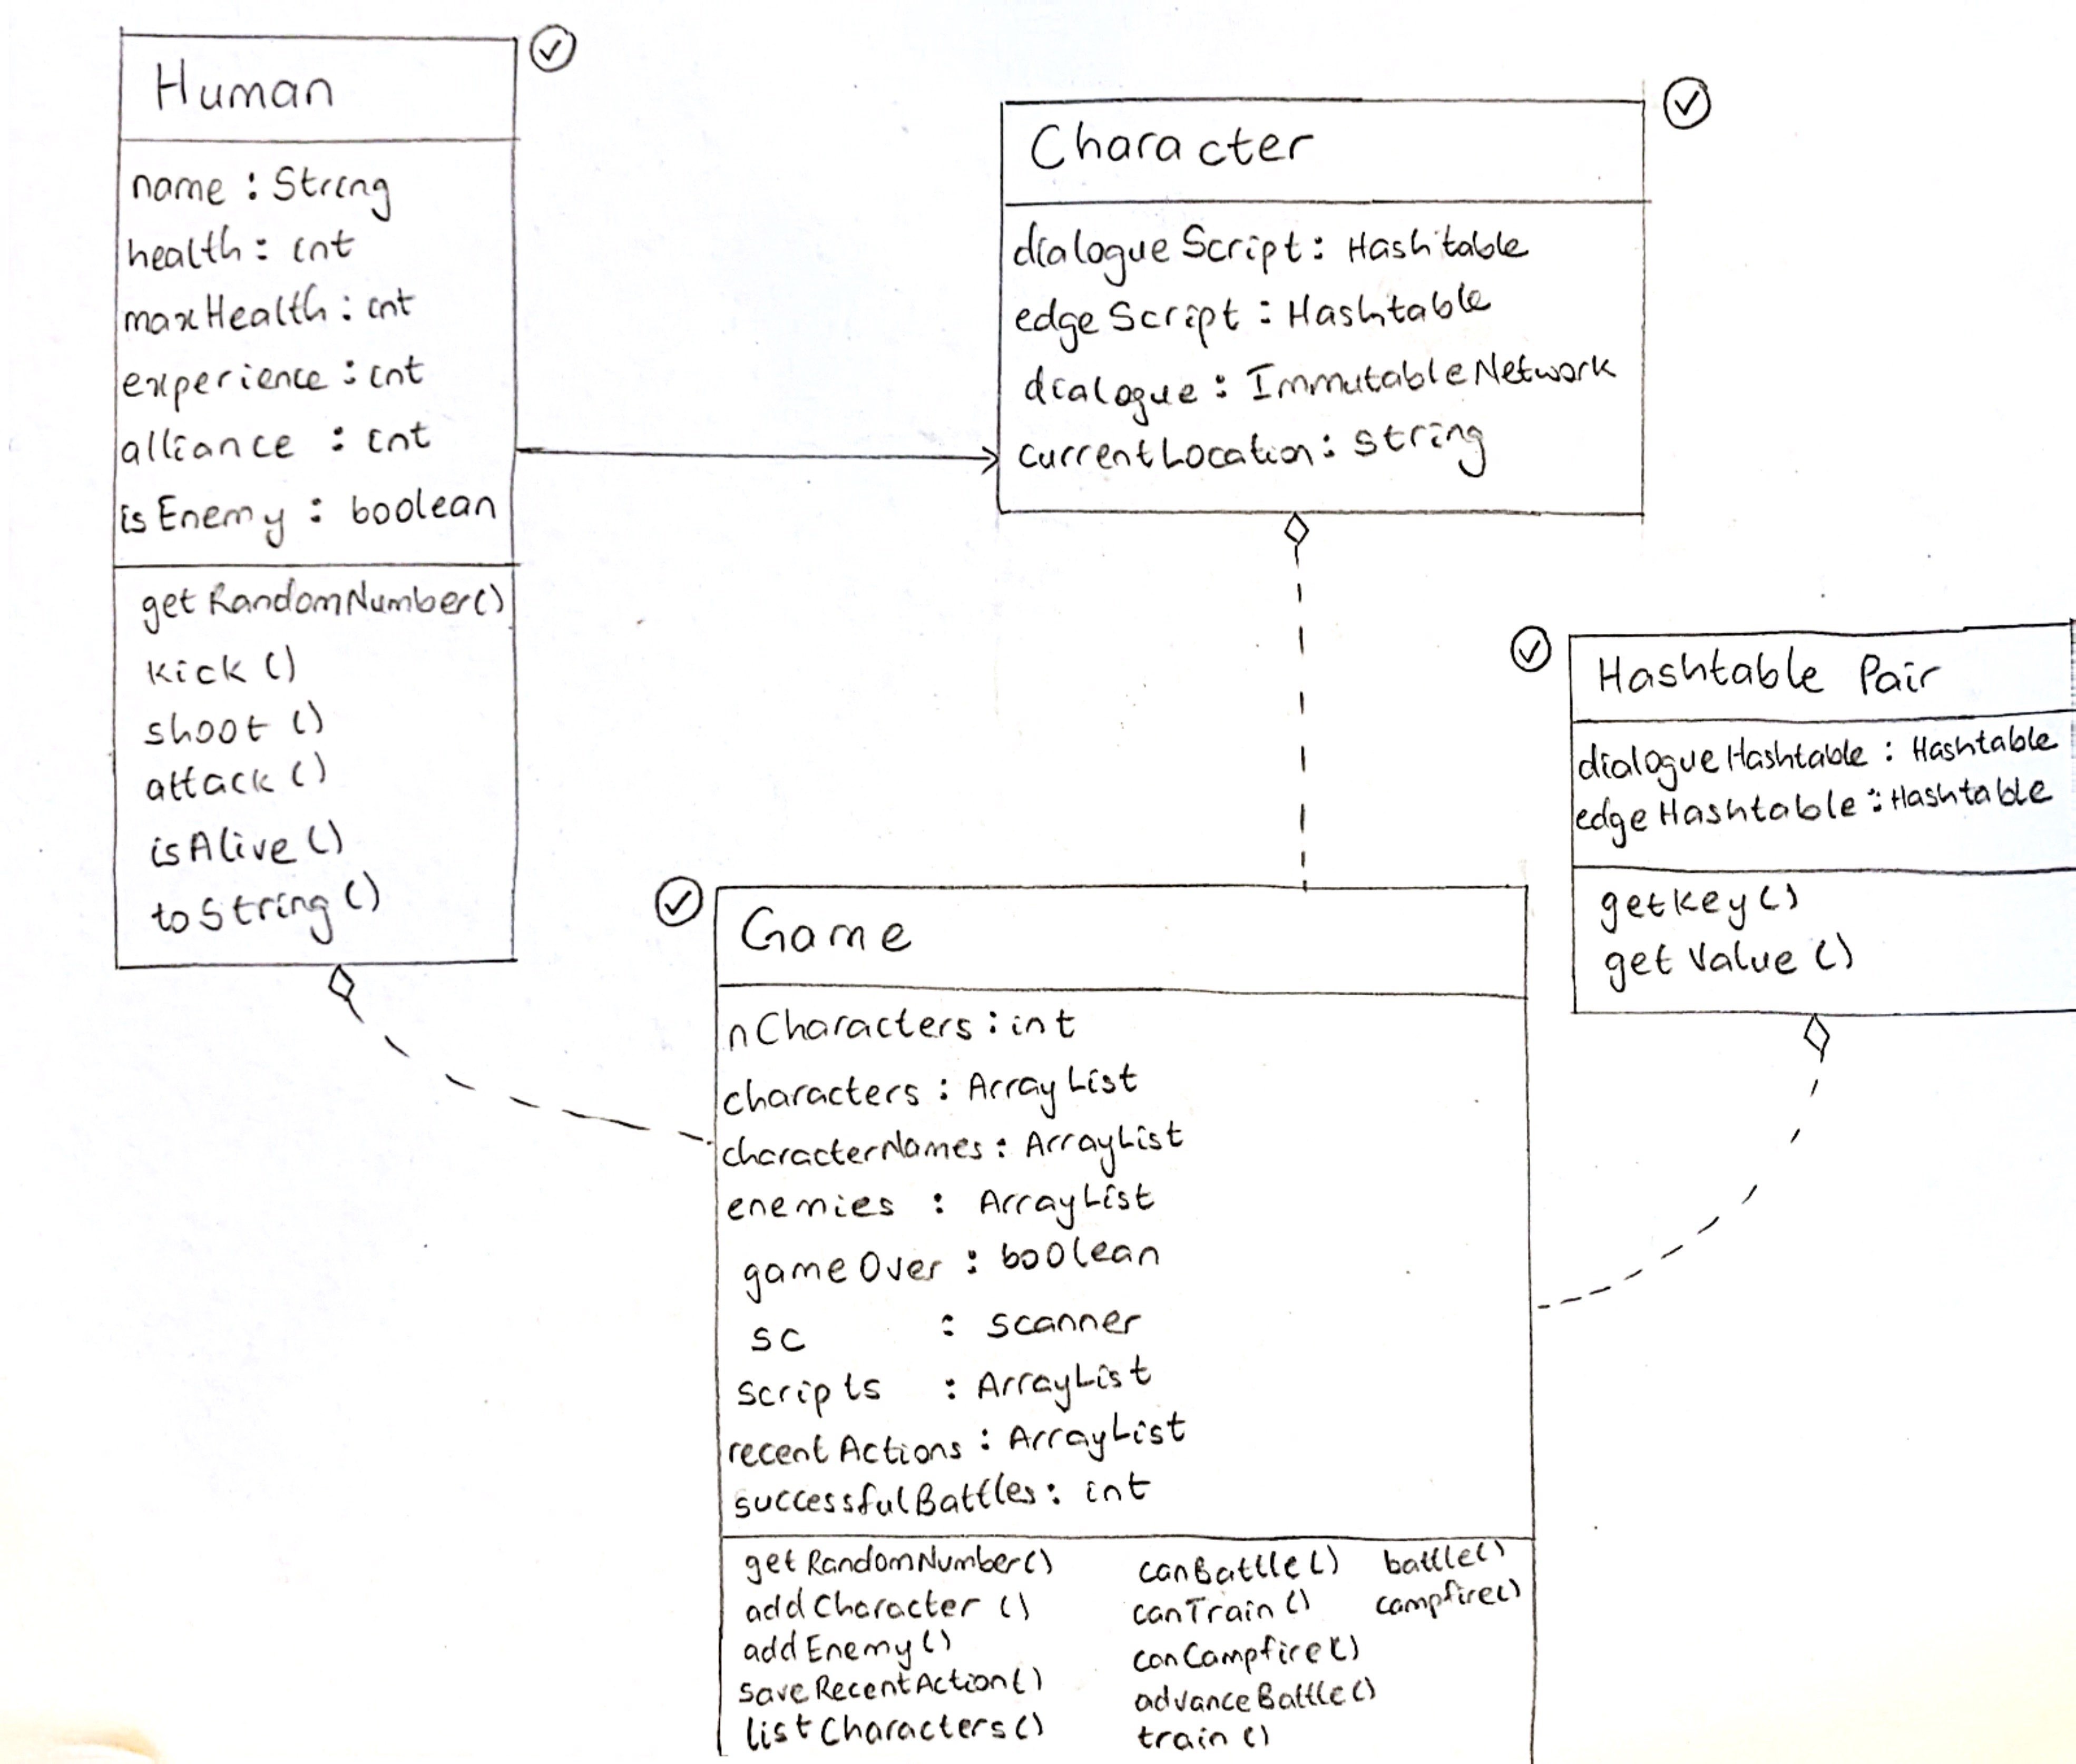 Human
name : String
health : int
maxHealth : int
experience : int
alliance : int
isEnemy : boolean
getRandomNumber()
kick ()
shoot ()
attack ()
isAlive ()
toString ()
Character
dialogueScript : Hashtable
edgeScript : Hashtable
dialogue : ImmutableNetwork
currentLocation : String
Hashtable Pair
dialogueHashtable : Hashtable
edgeHashtable : Hashtable
getKey()
getValue ()
Game
nCharacters : int
characters : ArrayList
characterNames : ArrayList
enemies : ArrayList
gameOver : boolean
sc : scanner
scripts : ArrayList
recentActions : ArrayList
successfulBattles : int
getRandomNumber() canBattle() battle()
addCharacter () canTrain () campfire()
addEnemy() canCampfire()
saveRecentAction() advanceBattle()
listCharacters() train ()